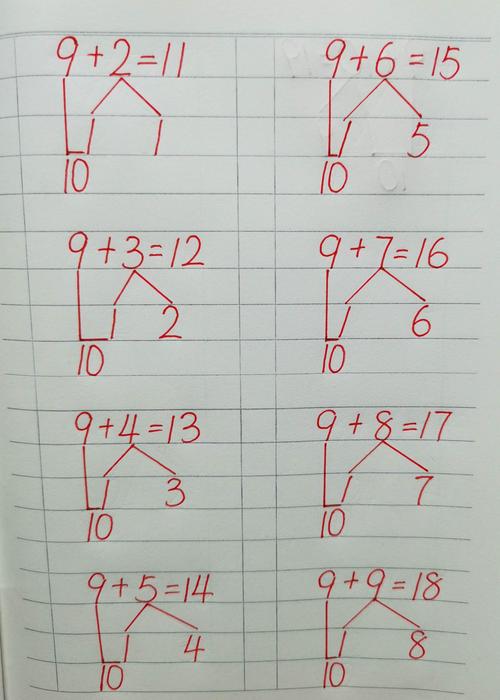 9+2=11
1 1
10
9+3=12
1 2
10
9+4=13
1 3
10
9+5=14
1 4
10
9+6=15
1 5
10
9+7=16
1 6
10
9+8=17
1 7
10
9+9=18
1 8
10